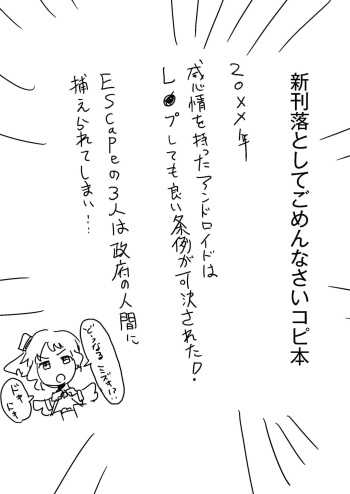 新刊落としてごめんなさいコピ本
20XX年
感情を持ったアンドロイドは
L●プしても良い条例が可決された!
EScapeの3人は政府の人間に
捕えられてしまい…
どうなるミズキ!?
ドキドキ